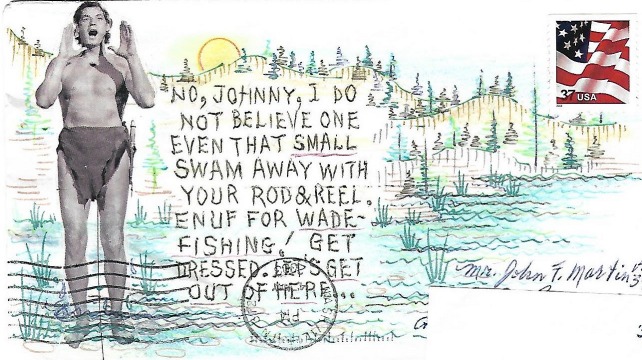 NO, JOHNNY, I DO
NOT BELIEVE ONE
EVEN THAT SMALL
SWAM AWAY WITH
YOUR ROD & REEL.
ENUF FOR WADE-
FISHING! GET
DRESSED. LET'S GET
OUT OF HERE...
37 USA
Mr. John F. Martin